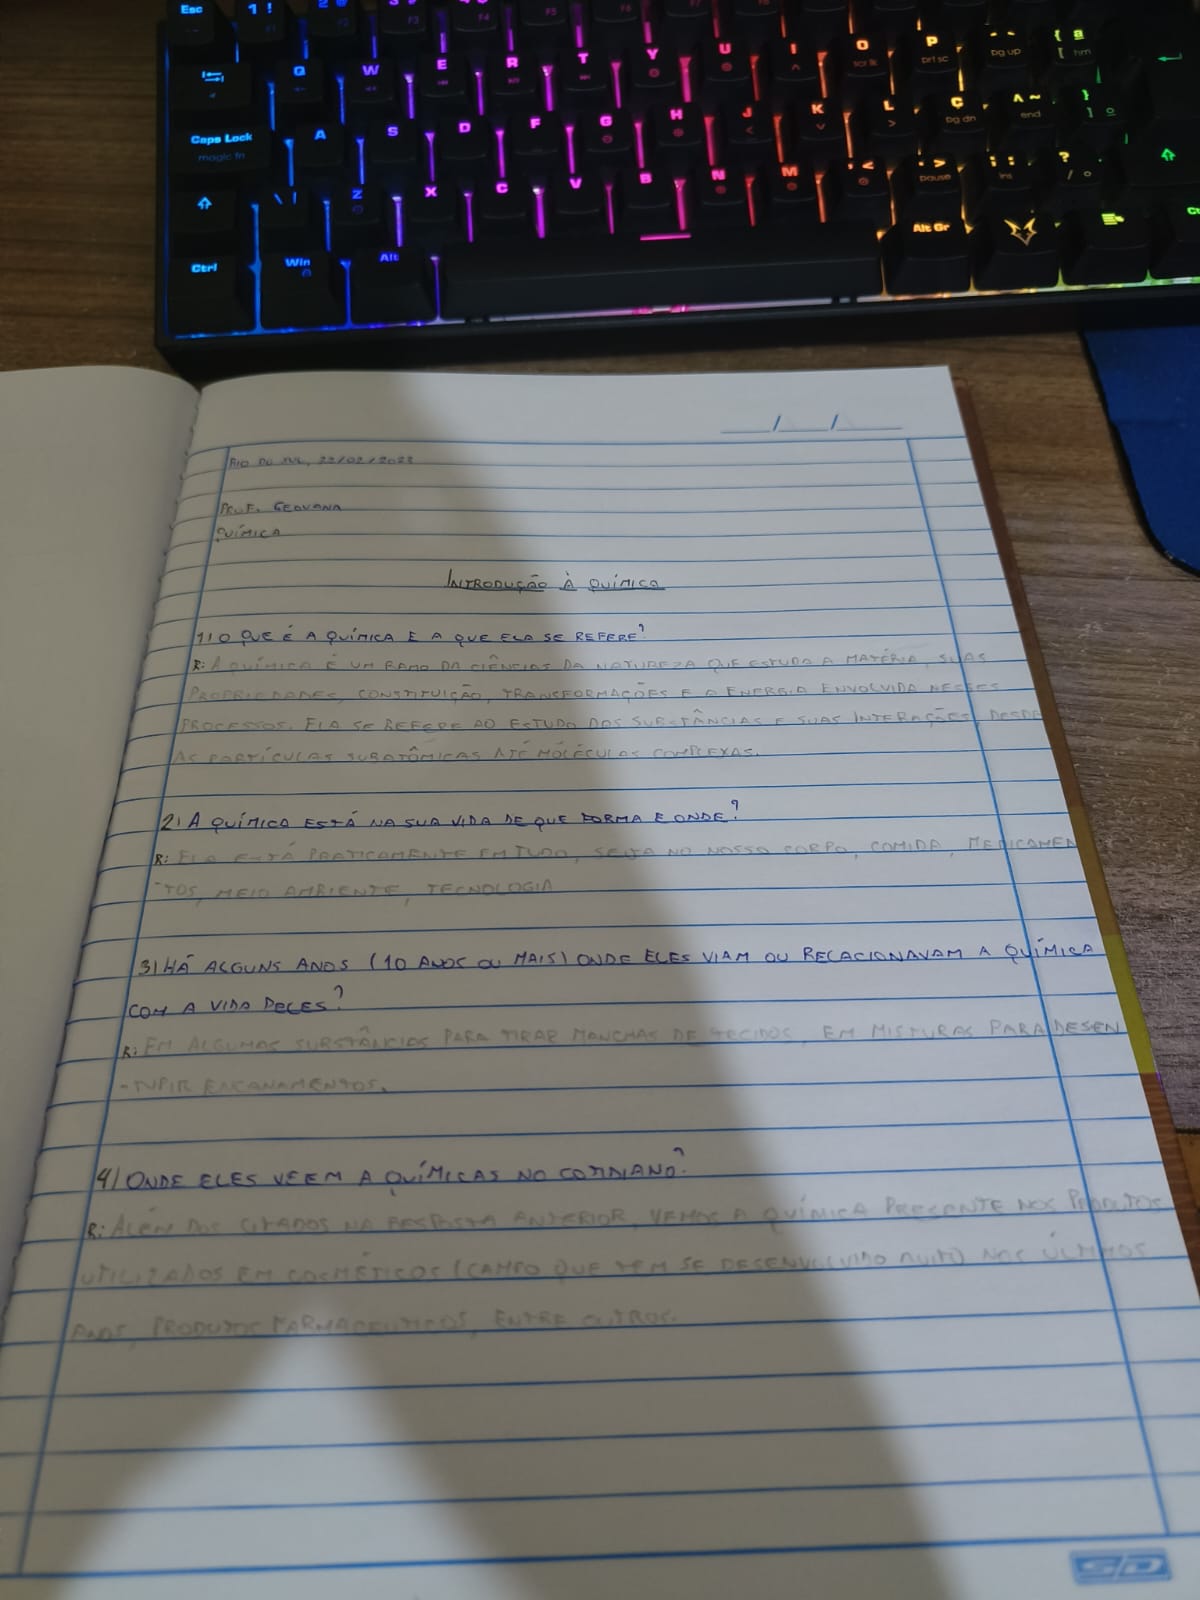 Esc
1 !
Q
W
E
R
T
Y
U
I
O
scr lk
P
prt sc
pg up
Caps Lock
magic fn
A
S
D
F
G
H
J
K
L
Ç
pg dn
end
Z
X
C
V
B
N
M
pause
ins
Ctrl
Win
Alt
Alt Gr
RIO DO SUL, 22/02/2023
PROF. GEOVANA
QUÍMICA
INTRODUÇÃO À QUÍMICA
1) O QUE É A QUÍMICA E A QUE ELA SE REFERE?
R: A QUÍMICA É UM RAMO DA CIÊNCIAS DA NATUREZA QUE ESTUDA A MATÉRIA, SUAS
PROPRIEDADES, CONSTITUIÇÃO, TRANSFORMAÇÕES E A ENERGIA ENVOLVIDA NESSES
PROCESSOS. ELA SE REFERE AO ESTUDO DAS SUBSTÂNCIAS E SUAS INTERAÇÕES, DESDE
AS PARTÍCULAS SUBATÔMICAS ATÉ MOLÉCULAS COMPLEXAS.
2) A QUÍMICA ESTÁ NA SUA VIDA DE QUE FORMA E ONDE?
R: ELA ESTÁ PRATICAMENTE EM TUDO, SEJA NO NOSSO CORPO, COMIDA, MEDICAMEN
-TOS, MEIO AMBIENTE, TECNOLOGIA
3) HÁ ALGUNS ANOS (10 ANOS OU MAIS) ONDE ELES VIAM OU RELACIONAVAM A QUÍMICA
COM A VIDA DELES?
R: EM ALGUMAS SUBSTÂNCIAS PARA TIRAR MANCHAS DE TECIDOS, EM MISTURAS PARA DESEN
-TUPIR ENCANAMENTOS.
4) ONDE ELES VEEM A QUÍMICAS NO COTIDIANO?
R: ALÉM DOS CITADOS NA RESPOSTA ANTERIOR, VEMOS A QUÍMICA PRESENTE NOS PRODUTOS
UTILIZADOS EM COSMÉTICOS (CAMPO QUE TEM SE DESENVOLVIDO MUITO) NOS ÚLTIMOS
ANOS, PRODUTOS FARMACEUTICOS, ENTRE OUTROS.
SD